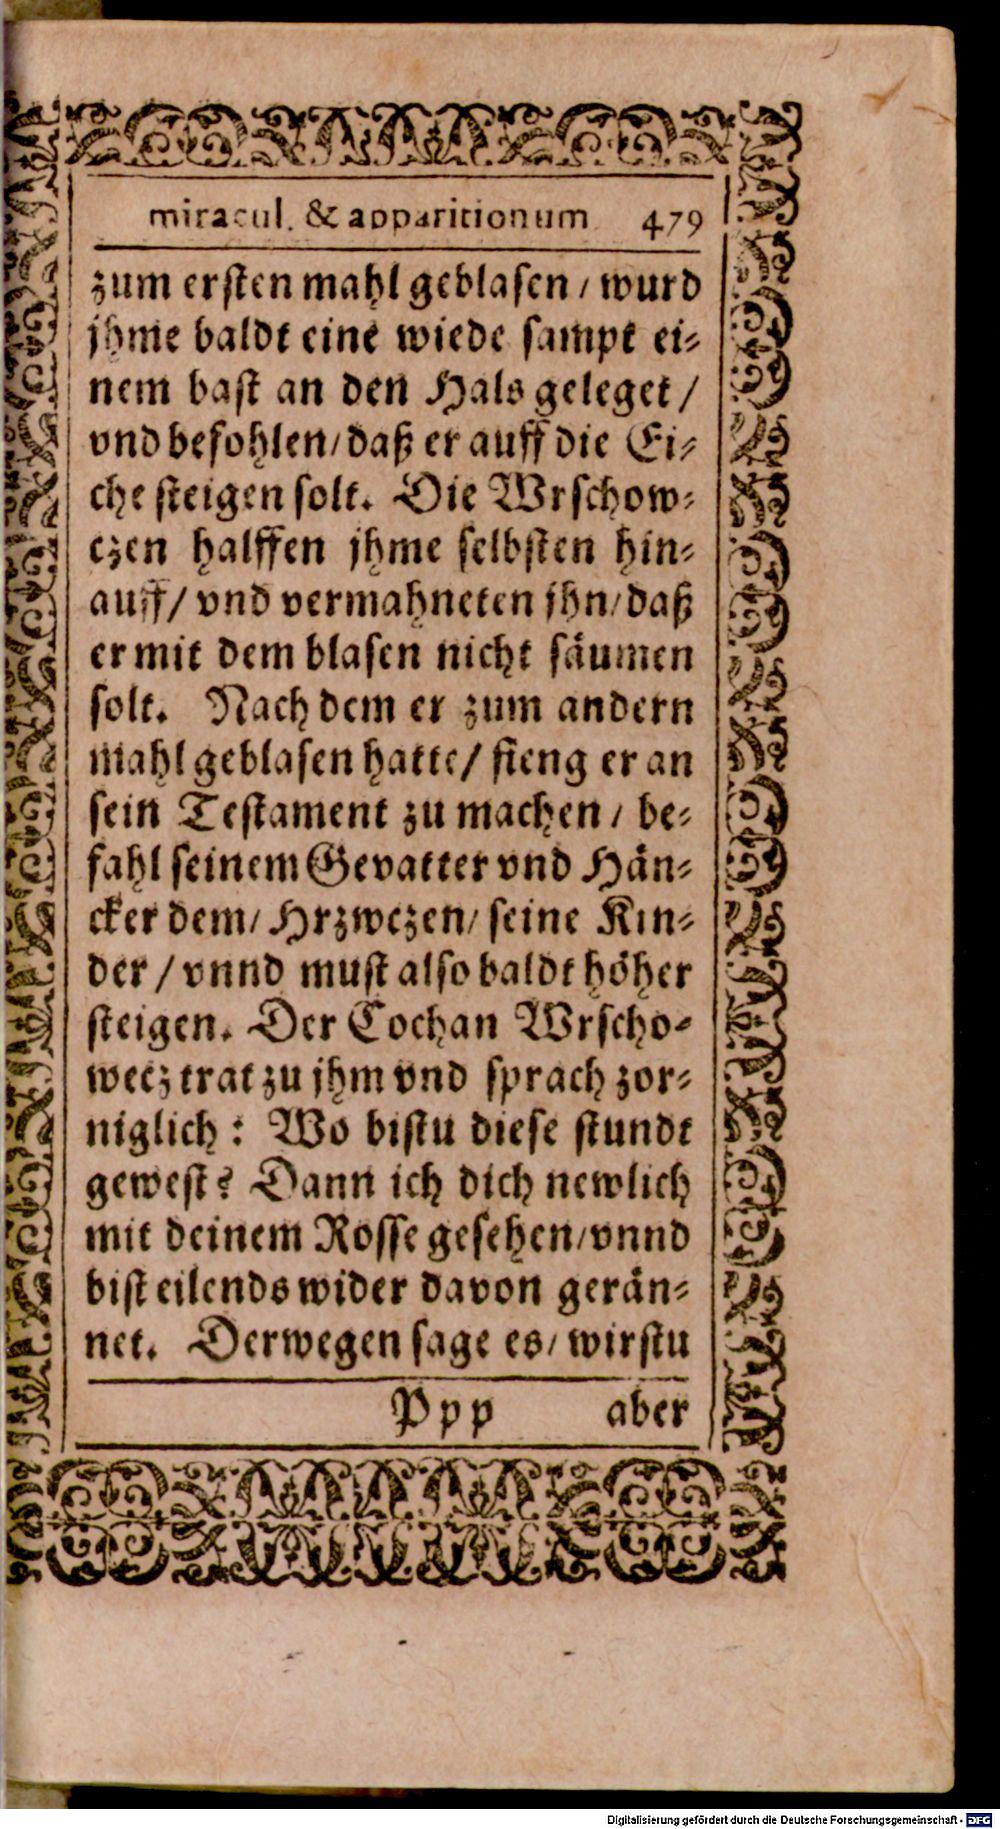 miracul. & apparitionum 479
zum ersten mahl geblasen / wurd
jhme baldt eine wiede sampt ei⸗
nem bast an den Hals geleget /
vnd befohlen / daß er auff die Ei⸗
che steigen solt. Die Wrschow⸗
czen halffen jhme selbsten hin⸗
auff / vnd vermahneten jhn / daß
er mit dem blasen nicht säumen
solt. Nach dem er zum andern
mahl geblasen hatte / fieng er an
sein Testament zu machen / be⸗
fahl seinem Gevatter vnd Hän⸗
cker dem / Hrzwczen / seine Kin⸗
der / vnnd must also baldt höher
steigen. Der Cochan Wrscho⸗
wecz trat zu jhm vnd sprach zor⸗
niglich: Wo bistu diese stundt
gewest? Dann ich dich newlich
mit deinem Rosse gesehen / vnnd
bist eilends wider davon gerän⸗
net. Derwegen sage es / wirstu
Ppp aber
Digitalisierung gefördert durch die Deutsche Forschungsgemeinschaft - DFG